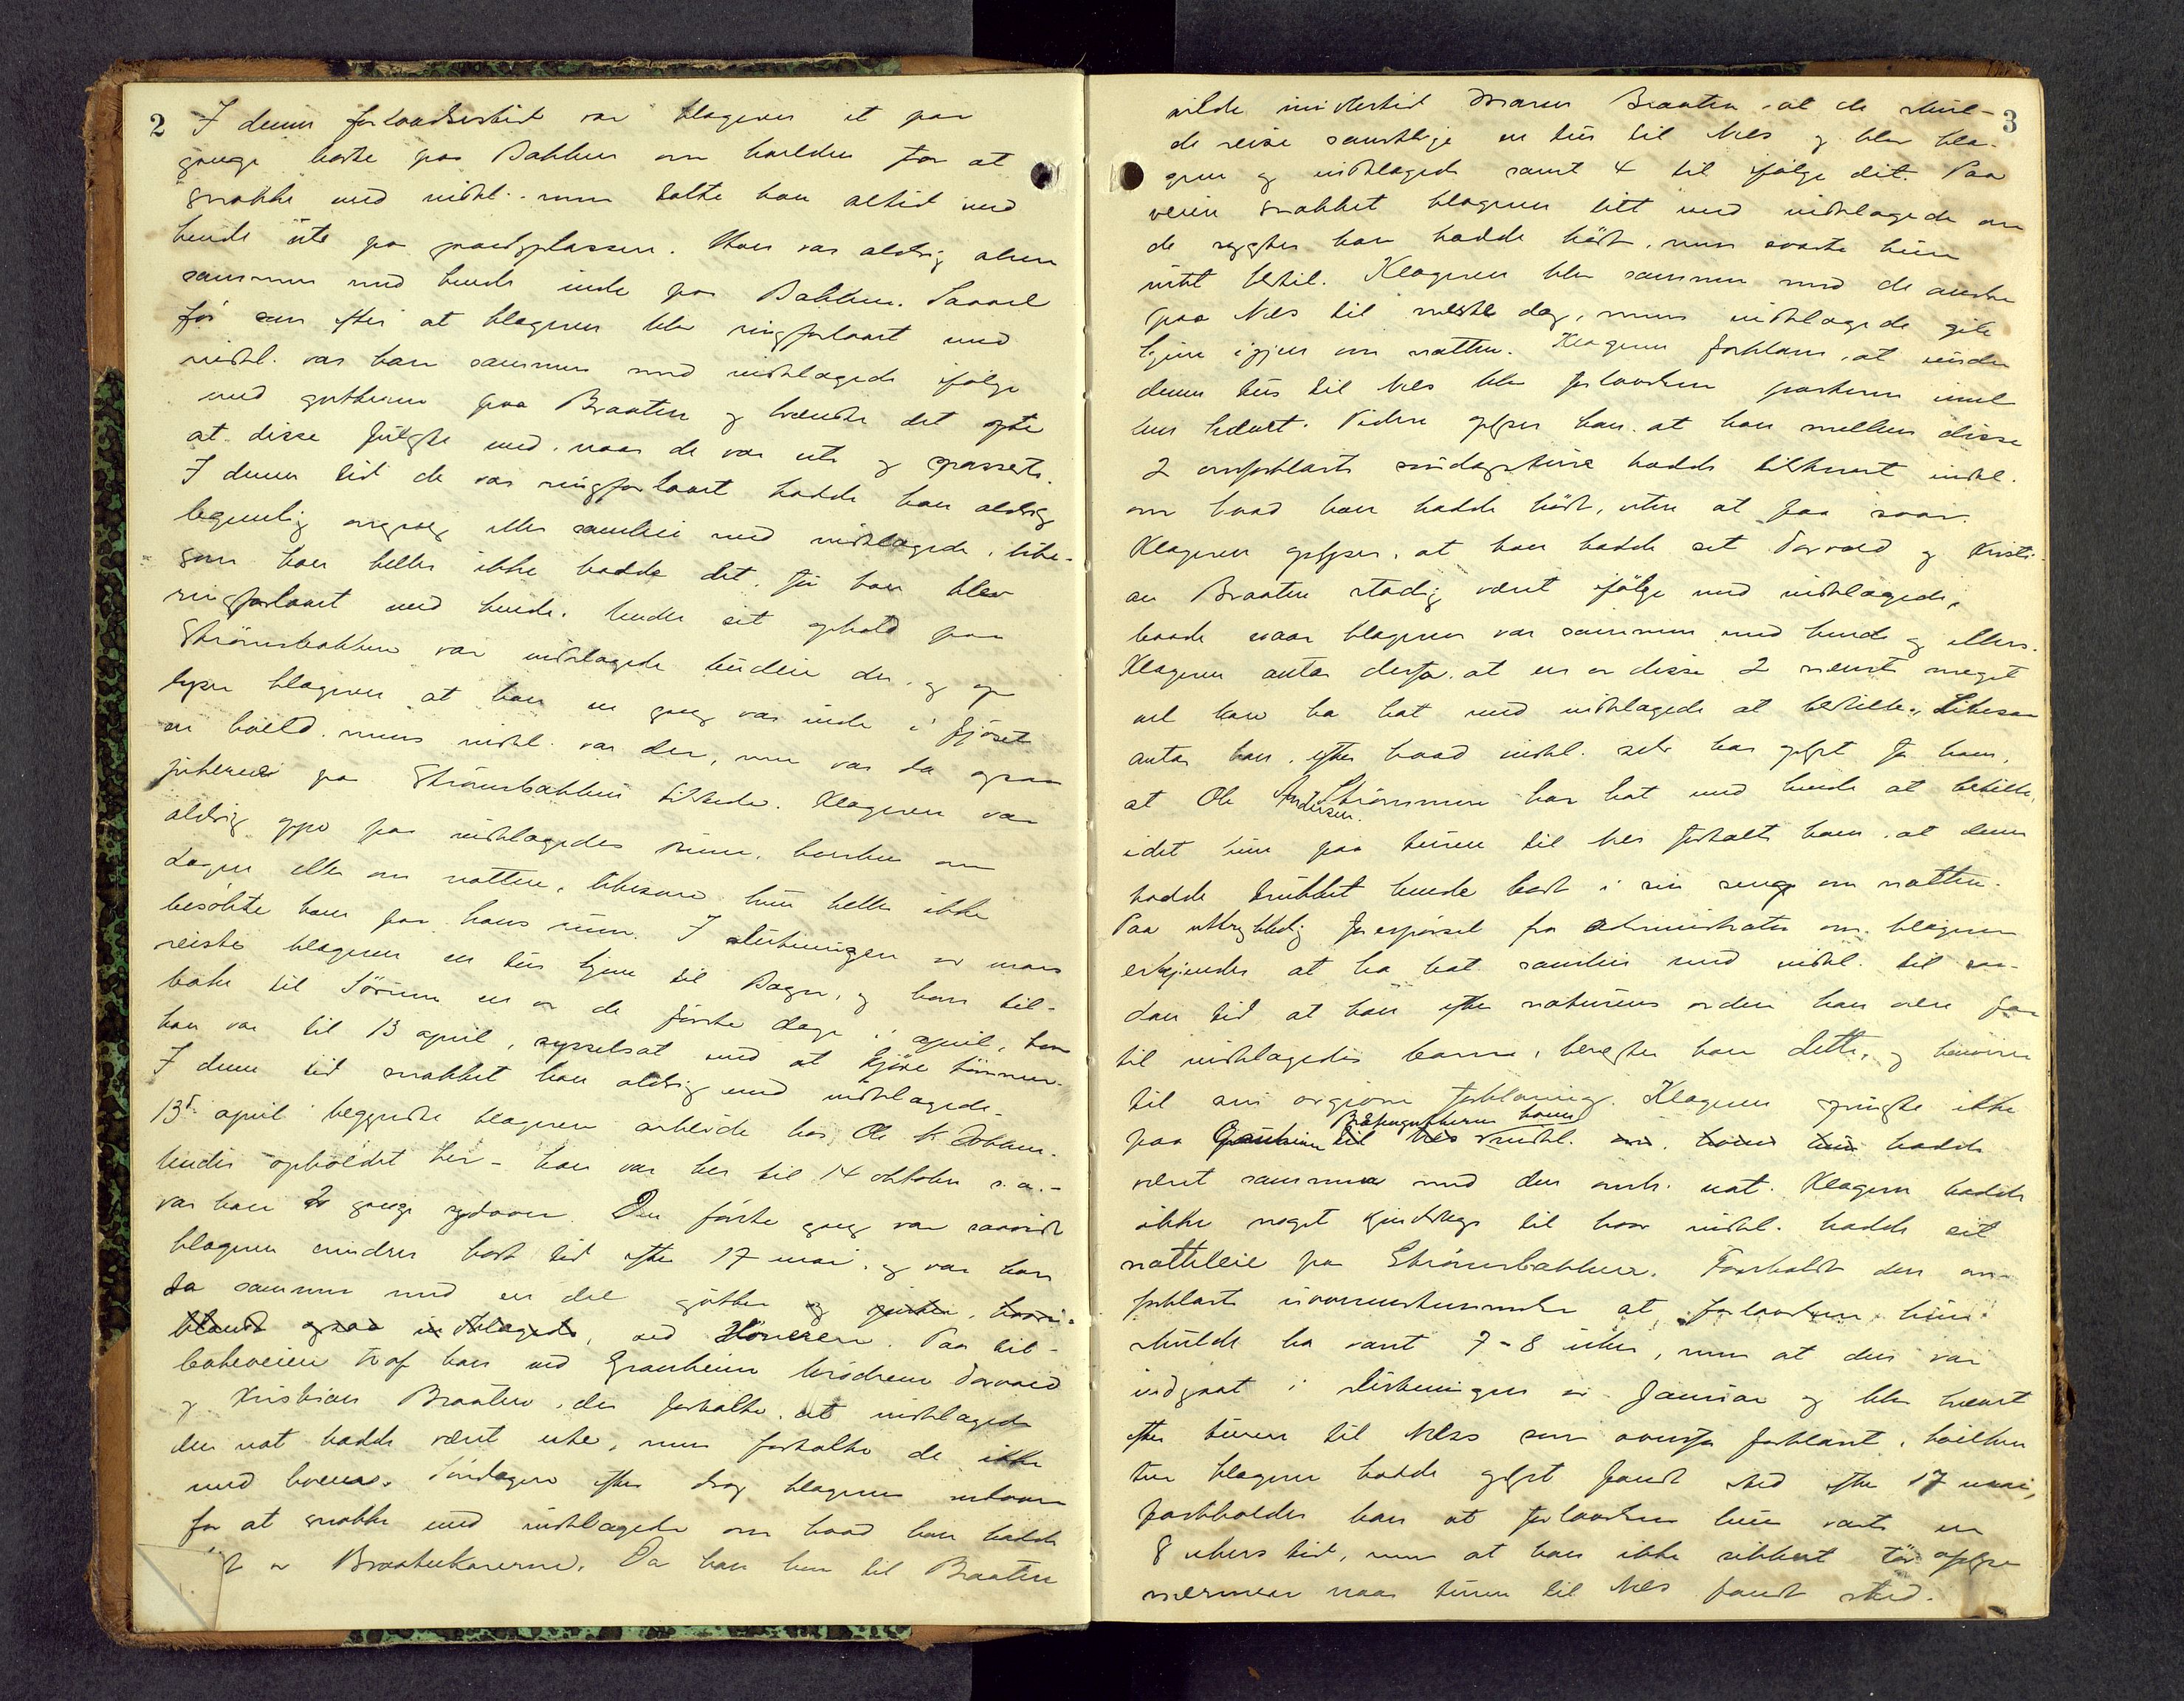 2
I denne forlovelsestid var klageren et par
gange borte paa Bakken om kvelden for at
snakke med indkl. men talte han altid med
hende ute paa gaardsplassen. Han var aldrig alene
sammen med hende inde paa Bakken. Saavel
før som efter at klageren blev ringforlovet med
indkl. var han sammen med indklagede ifølge
med guttene paa Braaten og hændte det ofte
at disse fulgte med, naar de var ute og spasserte.
I denne tid de var ringforlovet hadde han aldrig
legemlig omgang eller samleie med indklagede, like-
som han heller ikke hadde det, før han blev
ringforlovet med hende. Under sit ophold paa
Strömsbakken var indklagede budeie der, og op
lyser klageren at han en gang var inde i fjöset
en kveld mens indkl. var der, men var da ogsaa
paa Strömsbakken tilstede. Klageren var
aldrig oppe paa indklagedes rum, hverken om
dagen eller om natten, likesom hun heller ikke
besökte ham paa hans rum. I slutningen av mars
reiste klageren en tur hjem til Bagn, og kom til-
bake til Sörum en av de første dage i april, hvor
han var til 13 april, sysselsat med at kjøre tømmer.
I denne tid snakket han aldrig med indklagede.
13de april begyndte klageren arbeide hos Ole K.
Under opholdet her - han var her til 14 oktober s.a. -
var han 2 gange sydover. Den første gang var saavidt
klageren mindes kort tid efter 17 mai, og var han
da sammen med en del gutter og jenter,
blandt ogsaa indklagede, ved Höneren. Paa til-
bakeveien traf han ved Granheim brødrene Torvald
og Kristian Braaten, der fortalte, at indklagede
den nat hadde været ute, men fortalte de ikke
med hvem. Søndagen efter drog klageren utover
for at snakke med indklagede om hvad han hadde
av Braatenkarerne. Da han kom til Braaten
3
vilde imidlertid Maren Braaten at de skul-
de reise samtlige en tur til Nes og blev kla-
geren og indklagede samt 4 til ifølge dit. Paa
veien snakket klageren litt med indklagede om
de rygter han hadde hørt, men svarte hun
intet dertil. Klageren blev sammen med de andre
paa Nes til næste dag, mens indklagede gik
hjem igjen om natten. Klageren forklarer, at under
denne tur til Nes blev forlovelsen parterne imel
lem hævet. Videre oplyser han, at han mellem disse
2 omforklarte søndagsturer hadde tilskrevet indkl.
om hvad han hadde hørt, uten at faa svar.
Klageren oplyser, at han hadde set Torvald og Kristi-
an Braaten stadig været ifølge med indklagede,
baade naar klageren var sammen med hende og ellers.
Klageren antar derfor, at en av disse 2 nævnte meget
vel kan ha hat med indklagede at bestille. Likesaa
antar han, efter hvad indkl. selv har oplyst for ham,
at Ole Andersen Strömmen har hat med hende at bestille,
idet hun paa turen til Nes fortalte ham, at denne
hadde trukket hende bort i sin seng om natten.
Paa uttrykkelig forespørsel fra administrator om klageren
erkjender at ha hat samleie med indkl. til saa-
dan tid at han efter naturens orden kan være far
til indklagedes barn, benegter han dette, og henviser
til sin avgivne forklaring. Klageren spurgte ikke
paa Granheim til Nes Braatenguttene hvem indkl. om hvem hun hadde
været sammen med den omh. nat. Klageren hadde
ikke noget kjendskap til hvor indkl. hadde sit
natteleie paa Strömsbakken. Foreholdt den om-
forklarte uoverensstemmelse at forlovelsen kun
skulde ha vart 7-8 uker, men at den var
indgaat i slutningen av januar og blev hævet
efter turen til Nes som ovenfor forklart, hvilken
tur klageren hadde oplyst fandt sted efter 17 mai,
fastholder han at forlovelsen kun varte en
8 ukers tid, men at han ikke sikkert tør oplyse
nærmere naar turen til Nes fandt sted.